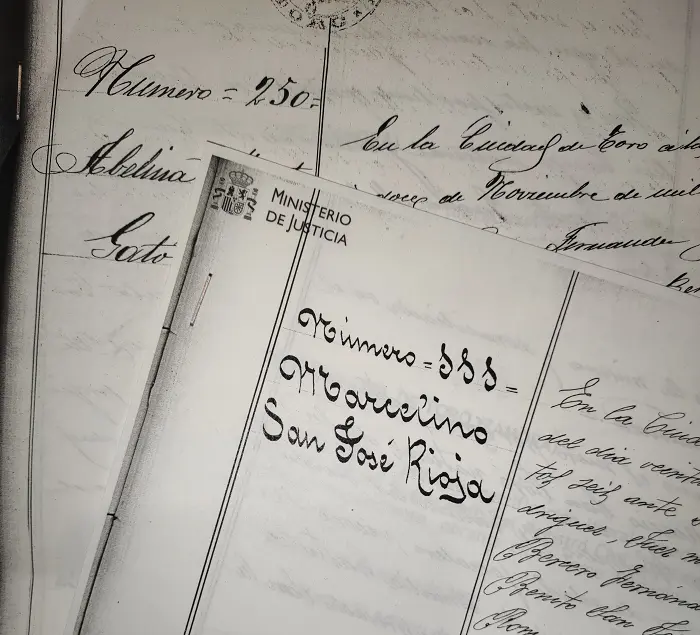 Numero = 250=
En la Ciudad de Toro á la
Abelina
doce de Noviembre de mil
Fernandez
Gato
MINISTERIO
DE JUSTICIA
Número = 555 =
Marcelino
San José Rioja
En la Ciuda
del dia veinti
tos seis ante
driguez, Juez m
Bercero Fernán
Benito